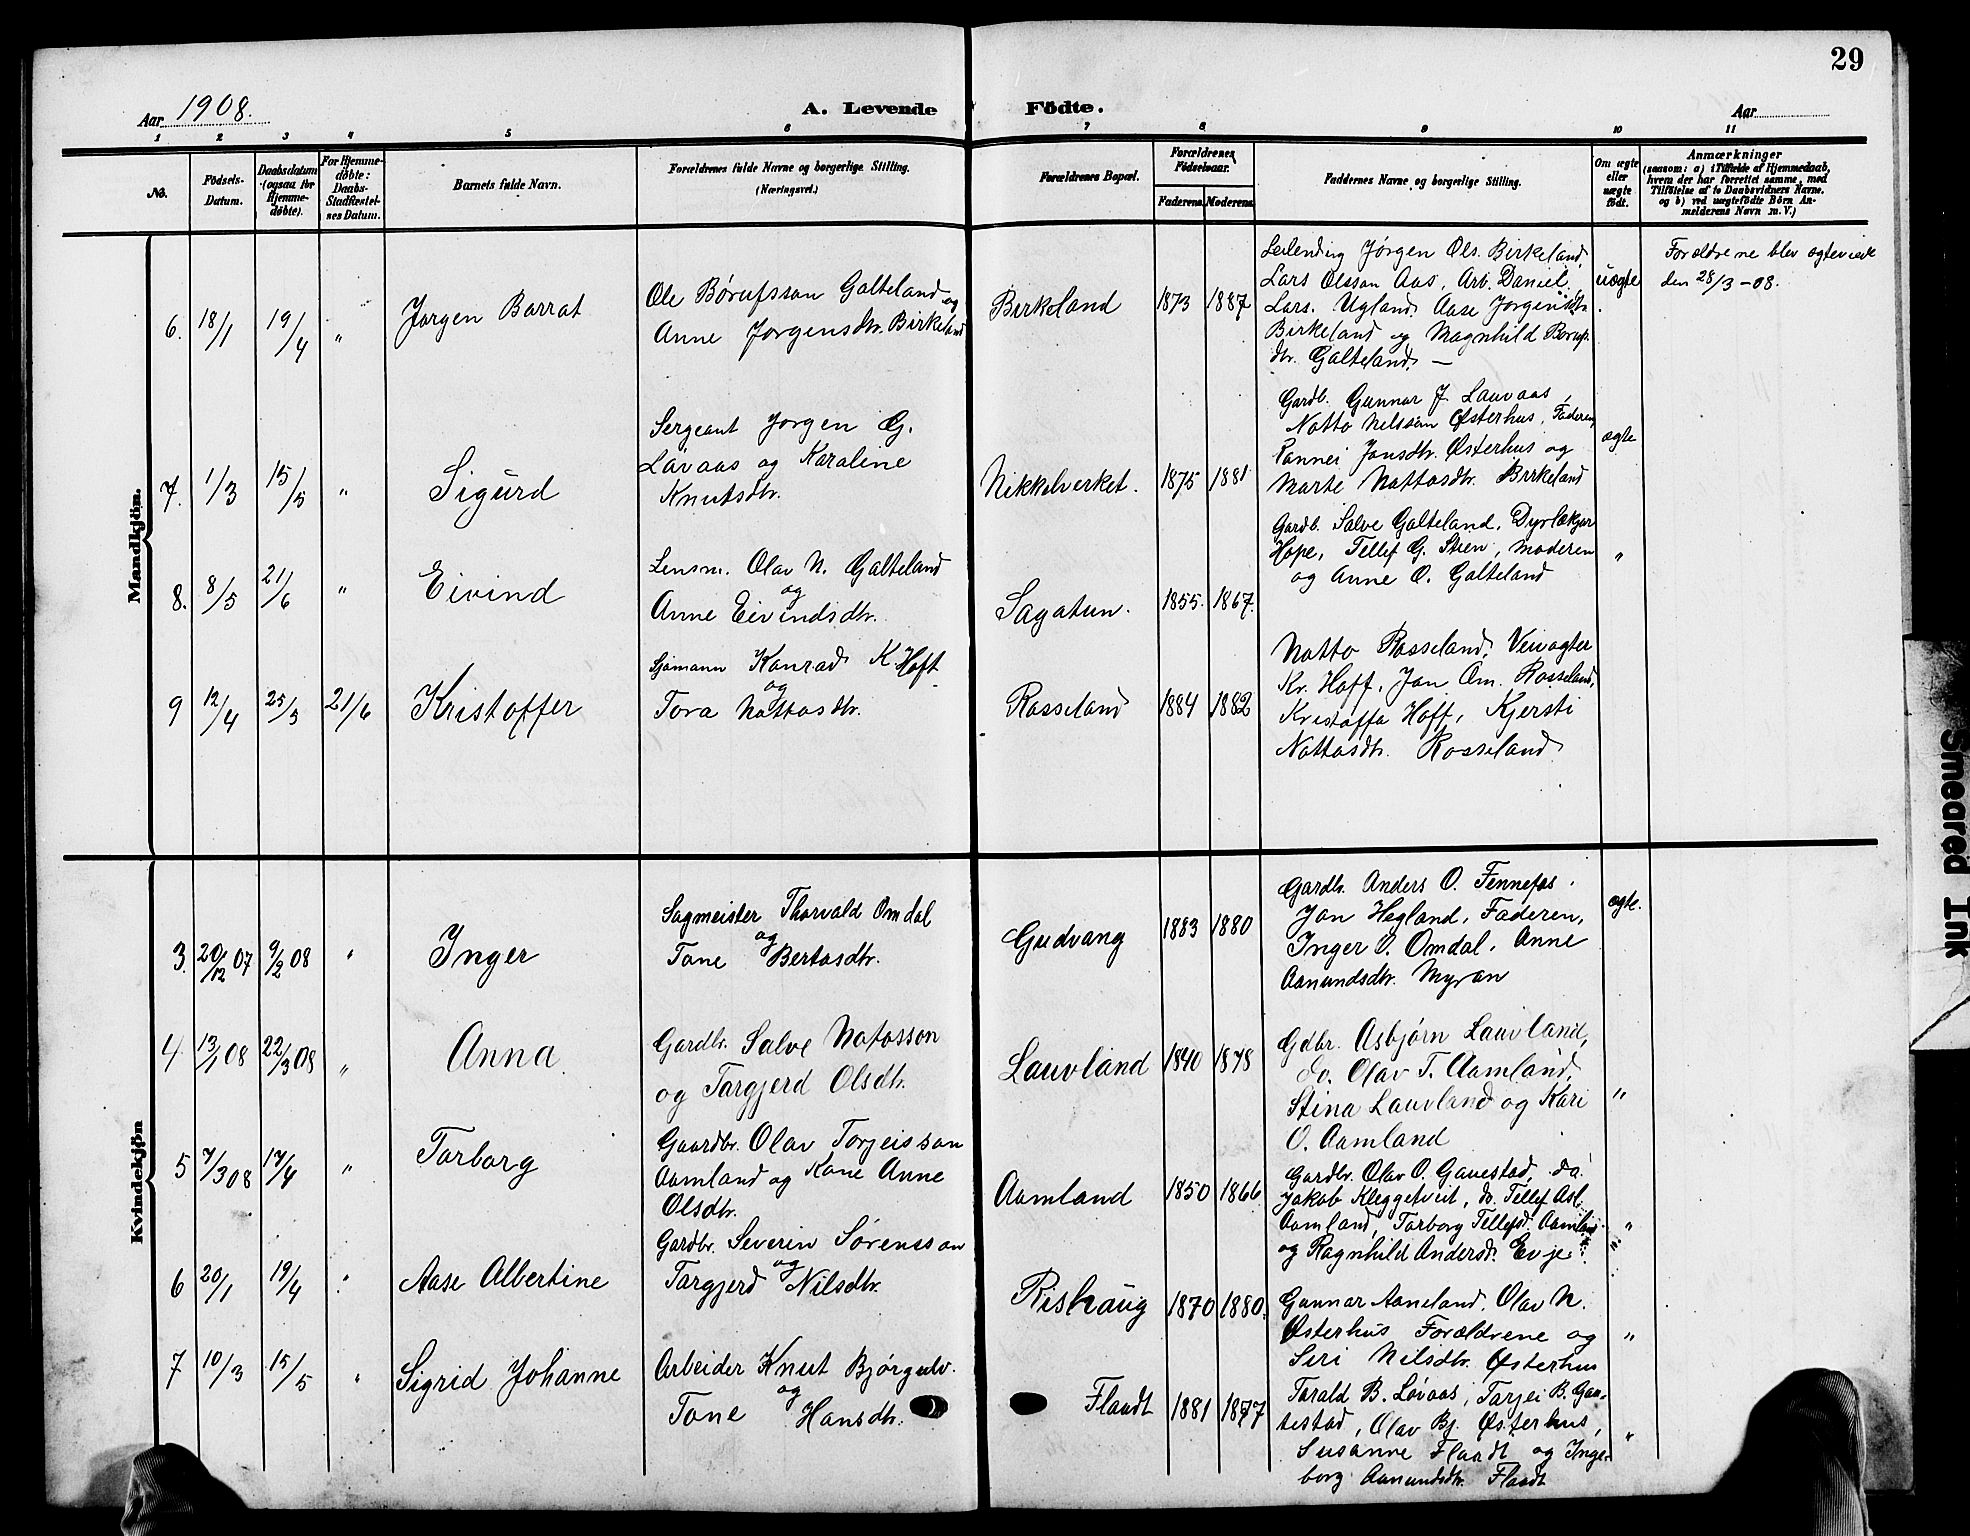 29
Aar 1908.
A. Levende Födte.
Aar
1 2 3 4 5 6 7 8 9 10 11
No.
Födsels-Datum.
Daabsdatum (ogsaa for Hjemme-døbte).
For Hjemme-døbte: Daabs-Stadfæstelses Datum.
Barnets fulde Navn.
Forældrenes fulde Navne og borgerlige Stilling. (Næringsvei.)
Forældrenes Bopæl.
Forældrenes Födselsaar.
Faderens. Moderens.
Faddernes Navne og borgerlige Stilling.
Om ægte eller uægte født.
Anmærkninger
(saasom: a) i Tilfælde af Hjemmedaab,
hvem der har forrettet samme, med
Tilföielse af to Daabsvidners Navne.
og b) ved uægtefödte Börn An-
melderens Navn m. V.)
Mandkjön.
6. 18/1 19/4 " Jørgen Borrat
Ole Børufsson Galteland og
Anne Jørgensdtr. Birkeland
Birkeland 1873 1887
Leilending Jørgen Ols. Birkeland,
Lars Olsson Aas, Arb. Daniel
Lars. Ugland, Aase Jørgensdtr.
Birkeland og Magnhild Boruf-
dtr. Galteland. —
uægte.
Forældrene blev ægteviede
den 28/3 - 08.
7. 1/3 15/5 " Sigurd
Sergeant Jørgen G.
Løvaas og Karoline
Knutsdtr.
Nikkelverket. 1875 1881
Gardb. Gunnar J. Lauvaas,
Notto Nilsson Østerhus, Faderen
Rannei Jonsdtr. Østerhus og
Marte Nottosdtr. Birkeland
ægte
8. 8/5 21/6 " Eivind
Lensm. Olav N. Galteland
og
Anne Eivindsdtr.
Sagatun. 1855. 1867.
Gardb. Salve Galteland, Dyrlækjar
Hope, Tellef G. Steen, Moderen
og Anne O. Galteland
"
9 12/4 25/5 21/6 Kristoffer
Sjømann Konrad K. Hoft
og
Tora Nottosdtr.
Rosseland 1884 1882
Notto Rosseland, Veivogter
Kr. Hoff, Jon Om. Rosseland,
Kristoffa Hoff, Kjersti
Nottosdtr. Rosseland
Kvindekjön
3. 20/12 07 9/2 08 " Inger
Sagmeister Thorvald Omdal
og
Tone Bertosdtr.
Gudvang 1883 1880
Gardb. Anders O. Fennefos.
Jon Hegland, Faderen,
Inger O. Omdal, Anne
Aanundsdtr. Myran
ægte.
4. 13/1 08 22/3 08 " Anna.
Gardbr. Salve Notosson
og Torgjerd Olsdtr.
Lauvland 1840 1878
Gdbr. Asbjørn Lauvland,
do. Olav T. Aamland,
Stina Lauvland og Kari
O. Aamland
"
5 7/3 08 17/4 " Torborg
Gaardbr. Olav Torjeisson
Aamland og Kone Anne
Olsdtr.
Aamland 1850 1866
Gardbr. Olav O. Gauestad, do
Jakob Kleggetveit, do. Tellef Asl.
Aamland, Torborg Tellefsd. Aamland
og Ragnhild Andersd. Evje.
"
6 20/1 19/4 " Aase Albertine
Gardbr. Severin Sørensson
og
Torgjerd Nilsdtr.
Rishaug 1870 1880.
Gunnar Aaneland, Olav N.
Østerhus Forældrene og
Siri Nilsdtr. Østerhus
"
7 10/3 15/5 " Sigrid Johanne
Arbeider Knut Bjørgulv.
og
Tone Hansdtr.
Flaadt 1881 1877
Torald B. Løvaas, Torjei B. Gau-
estad, Olav Bj. Østerhus,
Susanne Flaadt og Inge-
borg Aanundsdtr. Flaadt
"
Smeared Ink